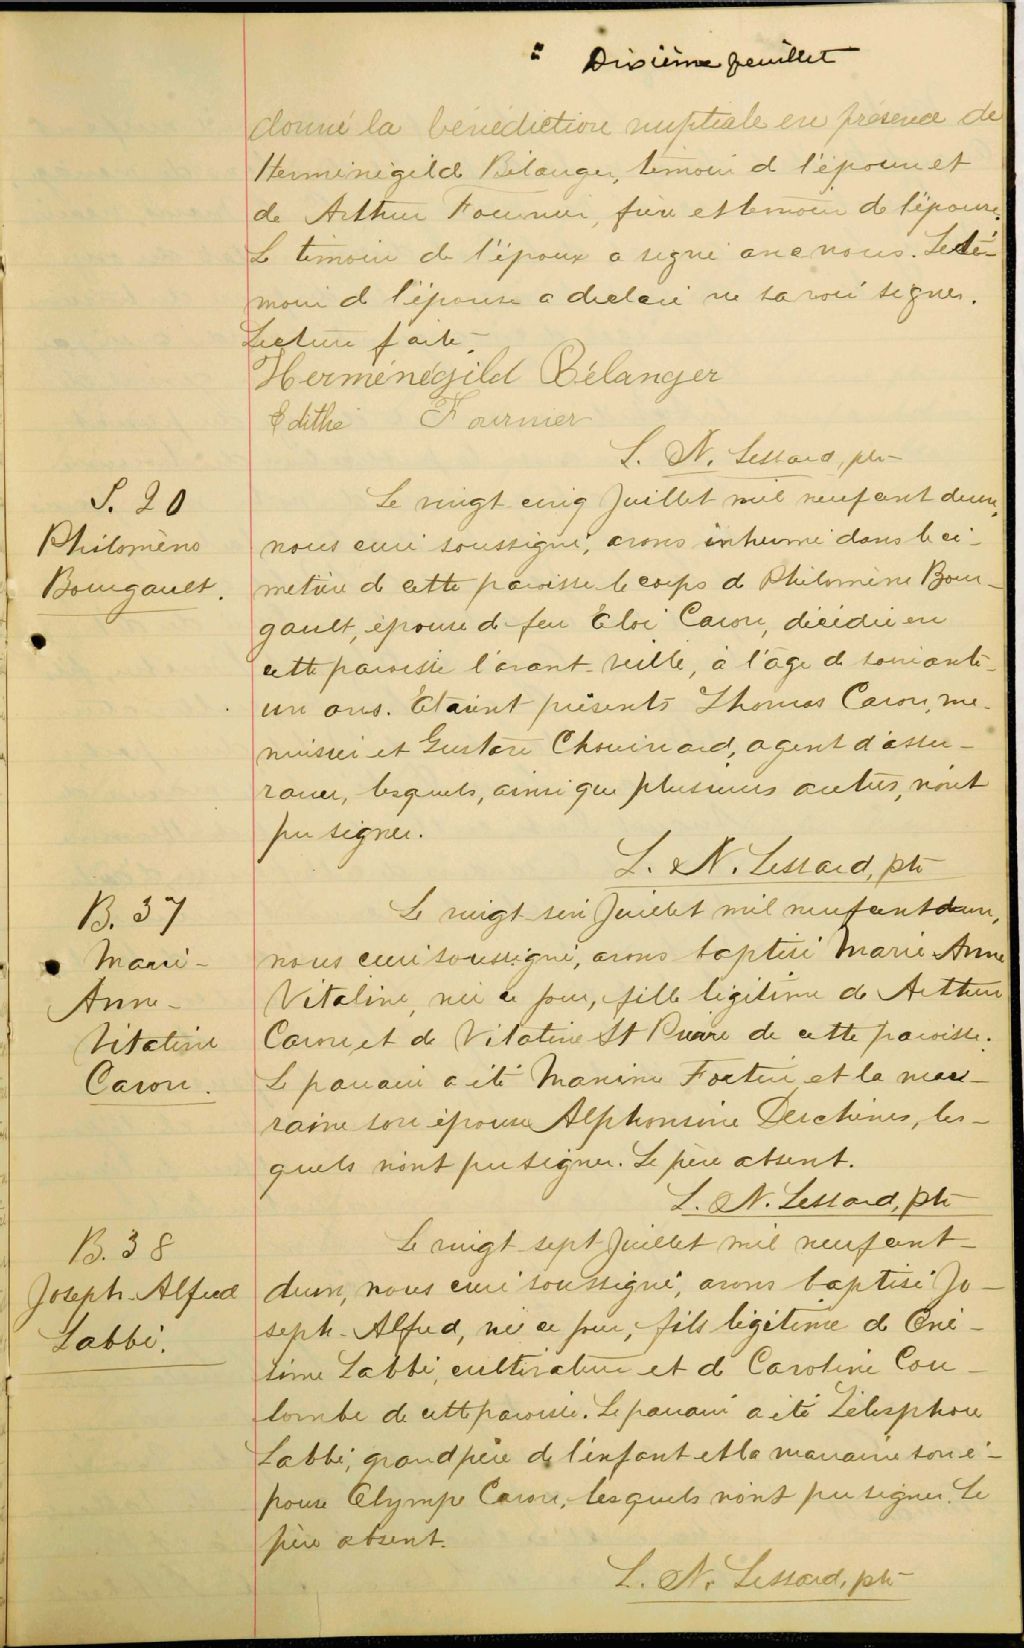 Dixième feuillet
donné la bénédiction nuptiale en présence de
Herménégilde Bélanger, témoin de l'époux et
de Arthur Fournier, frère et témoin de l'épouse.
Le témoin de l'époux a signé avec nous. Le té-
moin de l'épouse a déclaré ne savoir signer.
Lecture faite.
Herménégild Bélanger
Edithe Fournier
L. N. Lessard, ptre
S. 20
Philomène
Bourgault.
Le vingt cinq Juillet mil neuf cent deux,
nous curé soussigné, avons inhumé dans le ci-
metière de cette paroisse le corps de Philomène Bour-
gault, épouse de feu Eloi Caron, décédée en
cette paroisse l'avant-veille, à l'âge de soixante-
un ans. Etaient présents Thomas Caron, me-
nuisier et Gustave Chouinard, agent d'assu-
rance, lesquels, ainsi que plusieurs autres, n'ont
pu signer.
L. N. Lessard, ptre
B. 37
Marie-
Anne-
Vitaline
Caron.
Le vingt six Juillet mil neuf cent deux,
nous curé soussigné, avons baptisé Marie Anne
Vitaline, née ce jour, fille légitime de Arthur
Caron et de Vitaline St Pierre de cette paroisse.
Le parrain a été Maxime Fortin et la mar-
raine son épouse Alphonsine Deschènes, les-
quels n'ont pu signer. Le père absent.
L. N. Lessard, ptre
B. 38
Joseph-Alfred
Labbé.
Le vingt sept Juillet mil neuf cent
deux, nous curé soussigné, avons baptisé Jo-
seph-Alfred, né ce jour, fils légitime de Oné-
sime Labbé, cultivateur et de Caroline Cou-
lombe de cette paroisse. Le parrain a été Télesphore
Labbé, grand père de l'enfant et la marraine son é-
pouse Olympe Caron, lesquels n'ont pu signer. Le
père absent.
L. N. Lessard, ptre